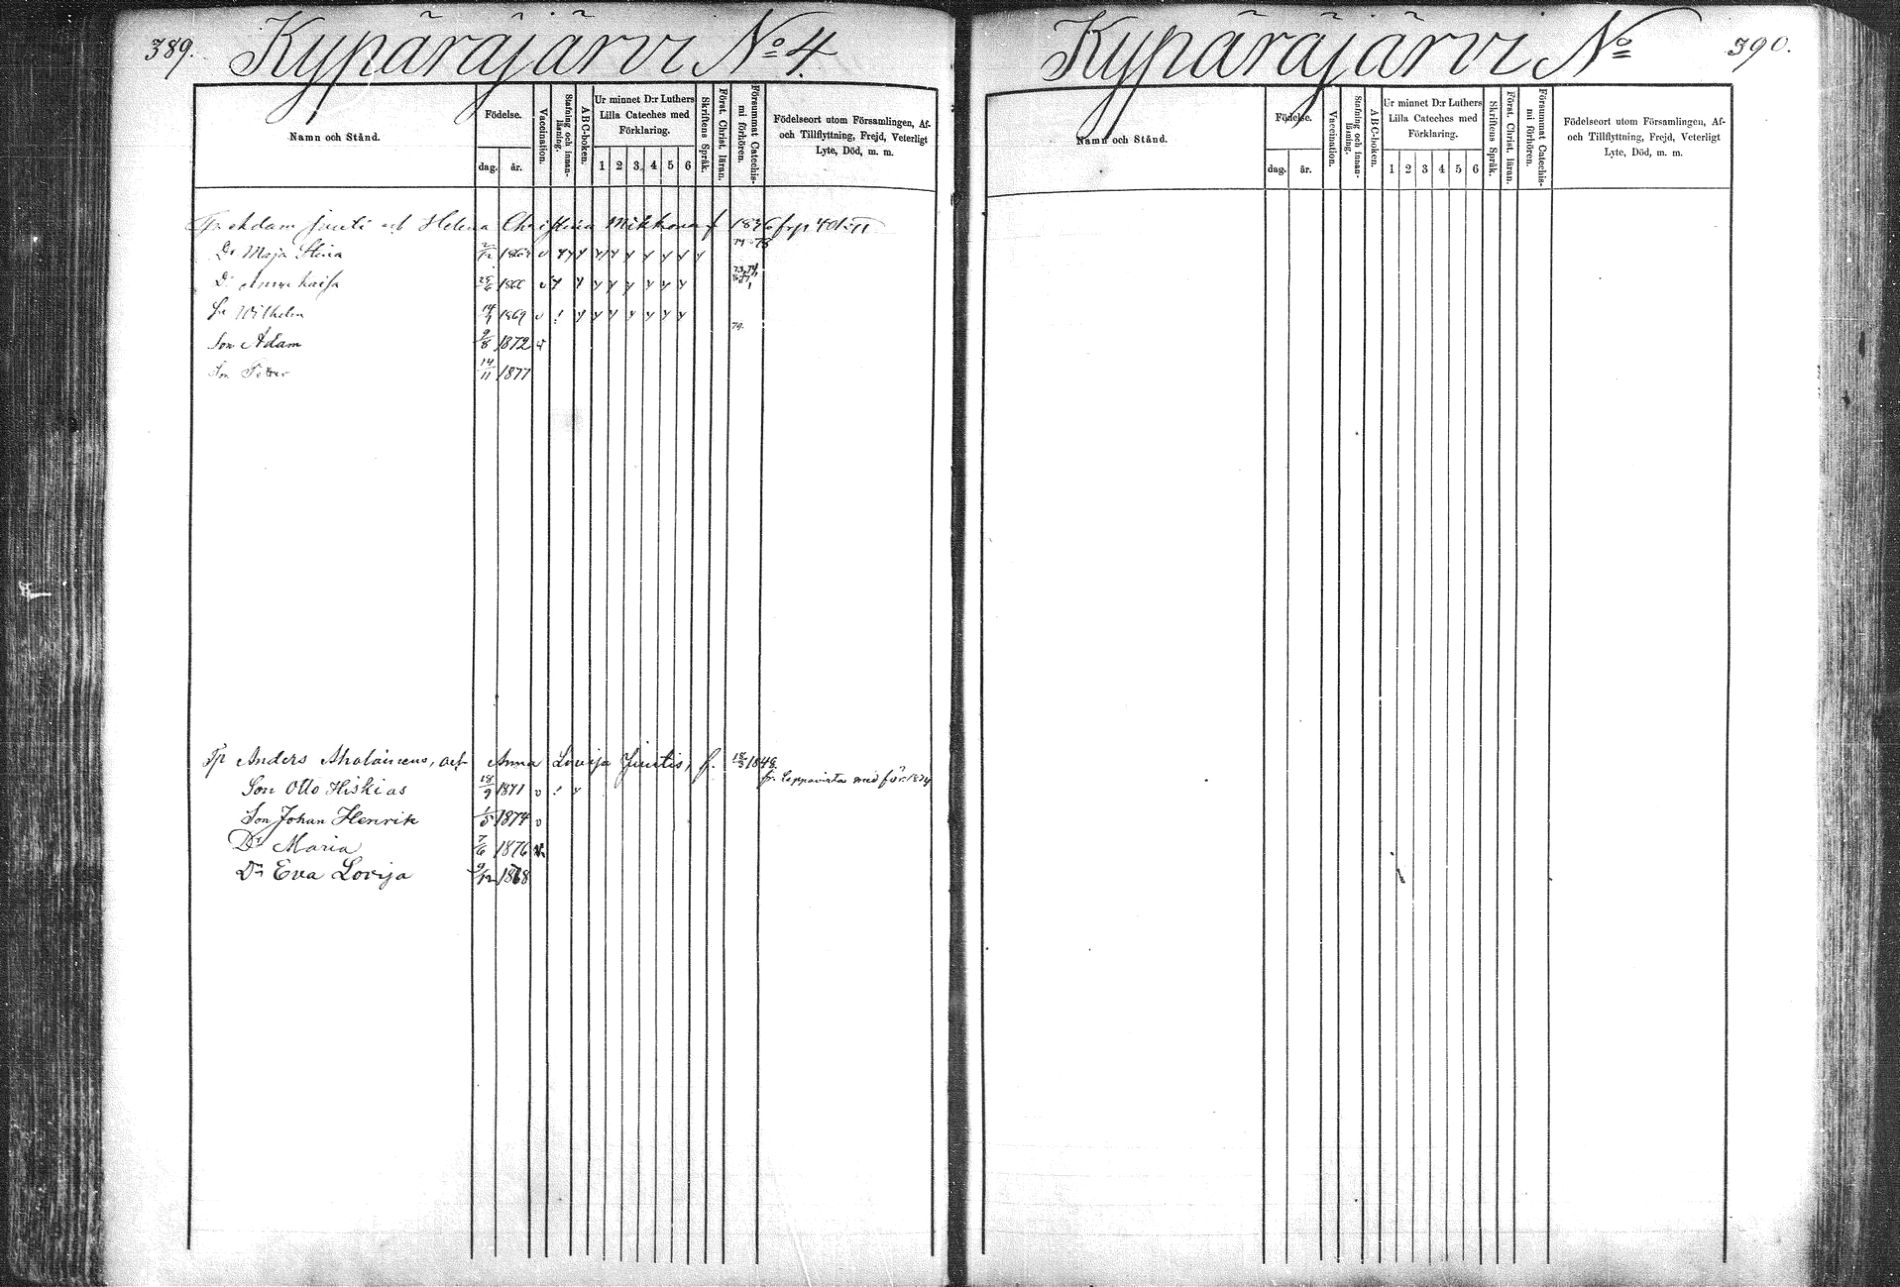 389. Kypäräjärvi No 4.
Namn och Stånd.
Födelse.
dag. år.
Vaccination.
Stafning och innanläsning.
A B C-boken.
Ur minnet D:r Luthers
Lilla Cateches med
Förklaring.
1 2 3 4 5 6
Skriftens Språk.
Först. Christ. läran.
Försummat Catechismi förhören.
Födelseort utom Församlingen, Af-
och Tillflyttning, Frejd, Veterligt
Lyte, Död, m. m.
Adam Juuti och Helena Christina Mikkonen f 1836
Dr Maja Stina 1863 v y y y y y y y y y y
78
Dr Anna Kaisa 1866 v y y y y y y y y
Sn Wilhelm 14/7 1869 v ! y y y y y y y
79.
Son Adam 9/8 1872 v
Son Petter 14/11 1877
Tp Anders Aholainens, och Anna Lovisa Juutis, f. 1848.
fr. Leppävirta med för. 1874
Son Otto Hiskias 18/9 1871 v ! y
Son Johan Henrik 1/5 1874 v
Dr Maria 7/6 1876 v.
Dr Eva Lovisa 9/12 1868
Kypäräjärvi No 390.
Namn och Stånd.
Födelse.
dag. år.
Vaccination.
Stafning och innanläsning.
A B C-boken.
Ur minnet D:r Luthers
Lilla Cateches med
Förklaring.
1 2 3 4 5 6
Skriftens Språk.
Först. Christ. läran.
Försummat Catechismi förhören.
Födelseort utom Församlingen, Af-
och Tillflyttning, Frejd, Veterligt
Lyte, Död, m. m.